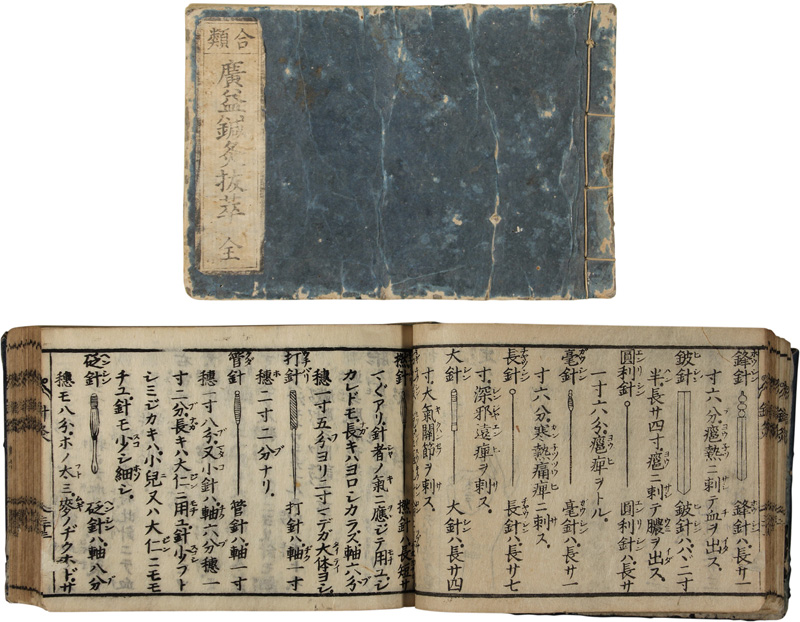 合類
廣益鍼灸抜萃 全
鋒針 鋒針ハ長サ一
寸六分。癰熱ニ刺テ血ヲ出ス。
鈹針 鈹針ハヾ二寸
半。長サ四寸癰ニ刺テ膿ヲ出ス。
圓利針 圓利針ハ長サ
一寸六分。癰痺ヲトル。
毫針 毫針ハ長サ一
寸六分。寒熱痛痺ニ刺ス。
長針 長針ハ長サ七
寸。深邪遠痺ヲ刺ス。
大針 大針ハ長サ四
寸。大氣關節ヲ刺ス。
撚針 撚針ハ長短サ
マ〲アリ針者ノ氣ニ應ジテ用ユ。シ
カレドモ。長キハヨロシカラズ軸六分。
穗一寸五分ヨリ二寸マデガ大体ヨシ。
打針 打針ハ軸一寸
穗二寸二分ナリ。
管針 管針ハ軸一寸
穗一寸八分。又小針ハ軸六分穗一
寸二分。長キハ大仁ニ用ユ針少フト
シミジカキハ。小兒又ハ大仁ニモモ
チユ針モ少シ細シ。
砭針 砭針ハ軸八分
穗モ八分。ホノ太三麥ノヂクホドサ